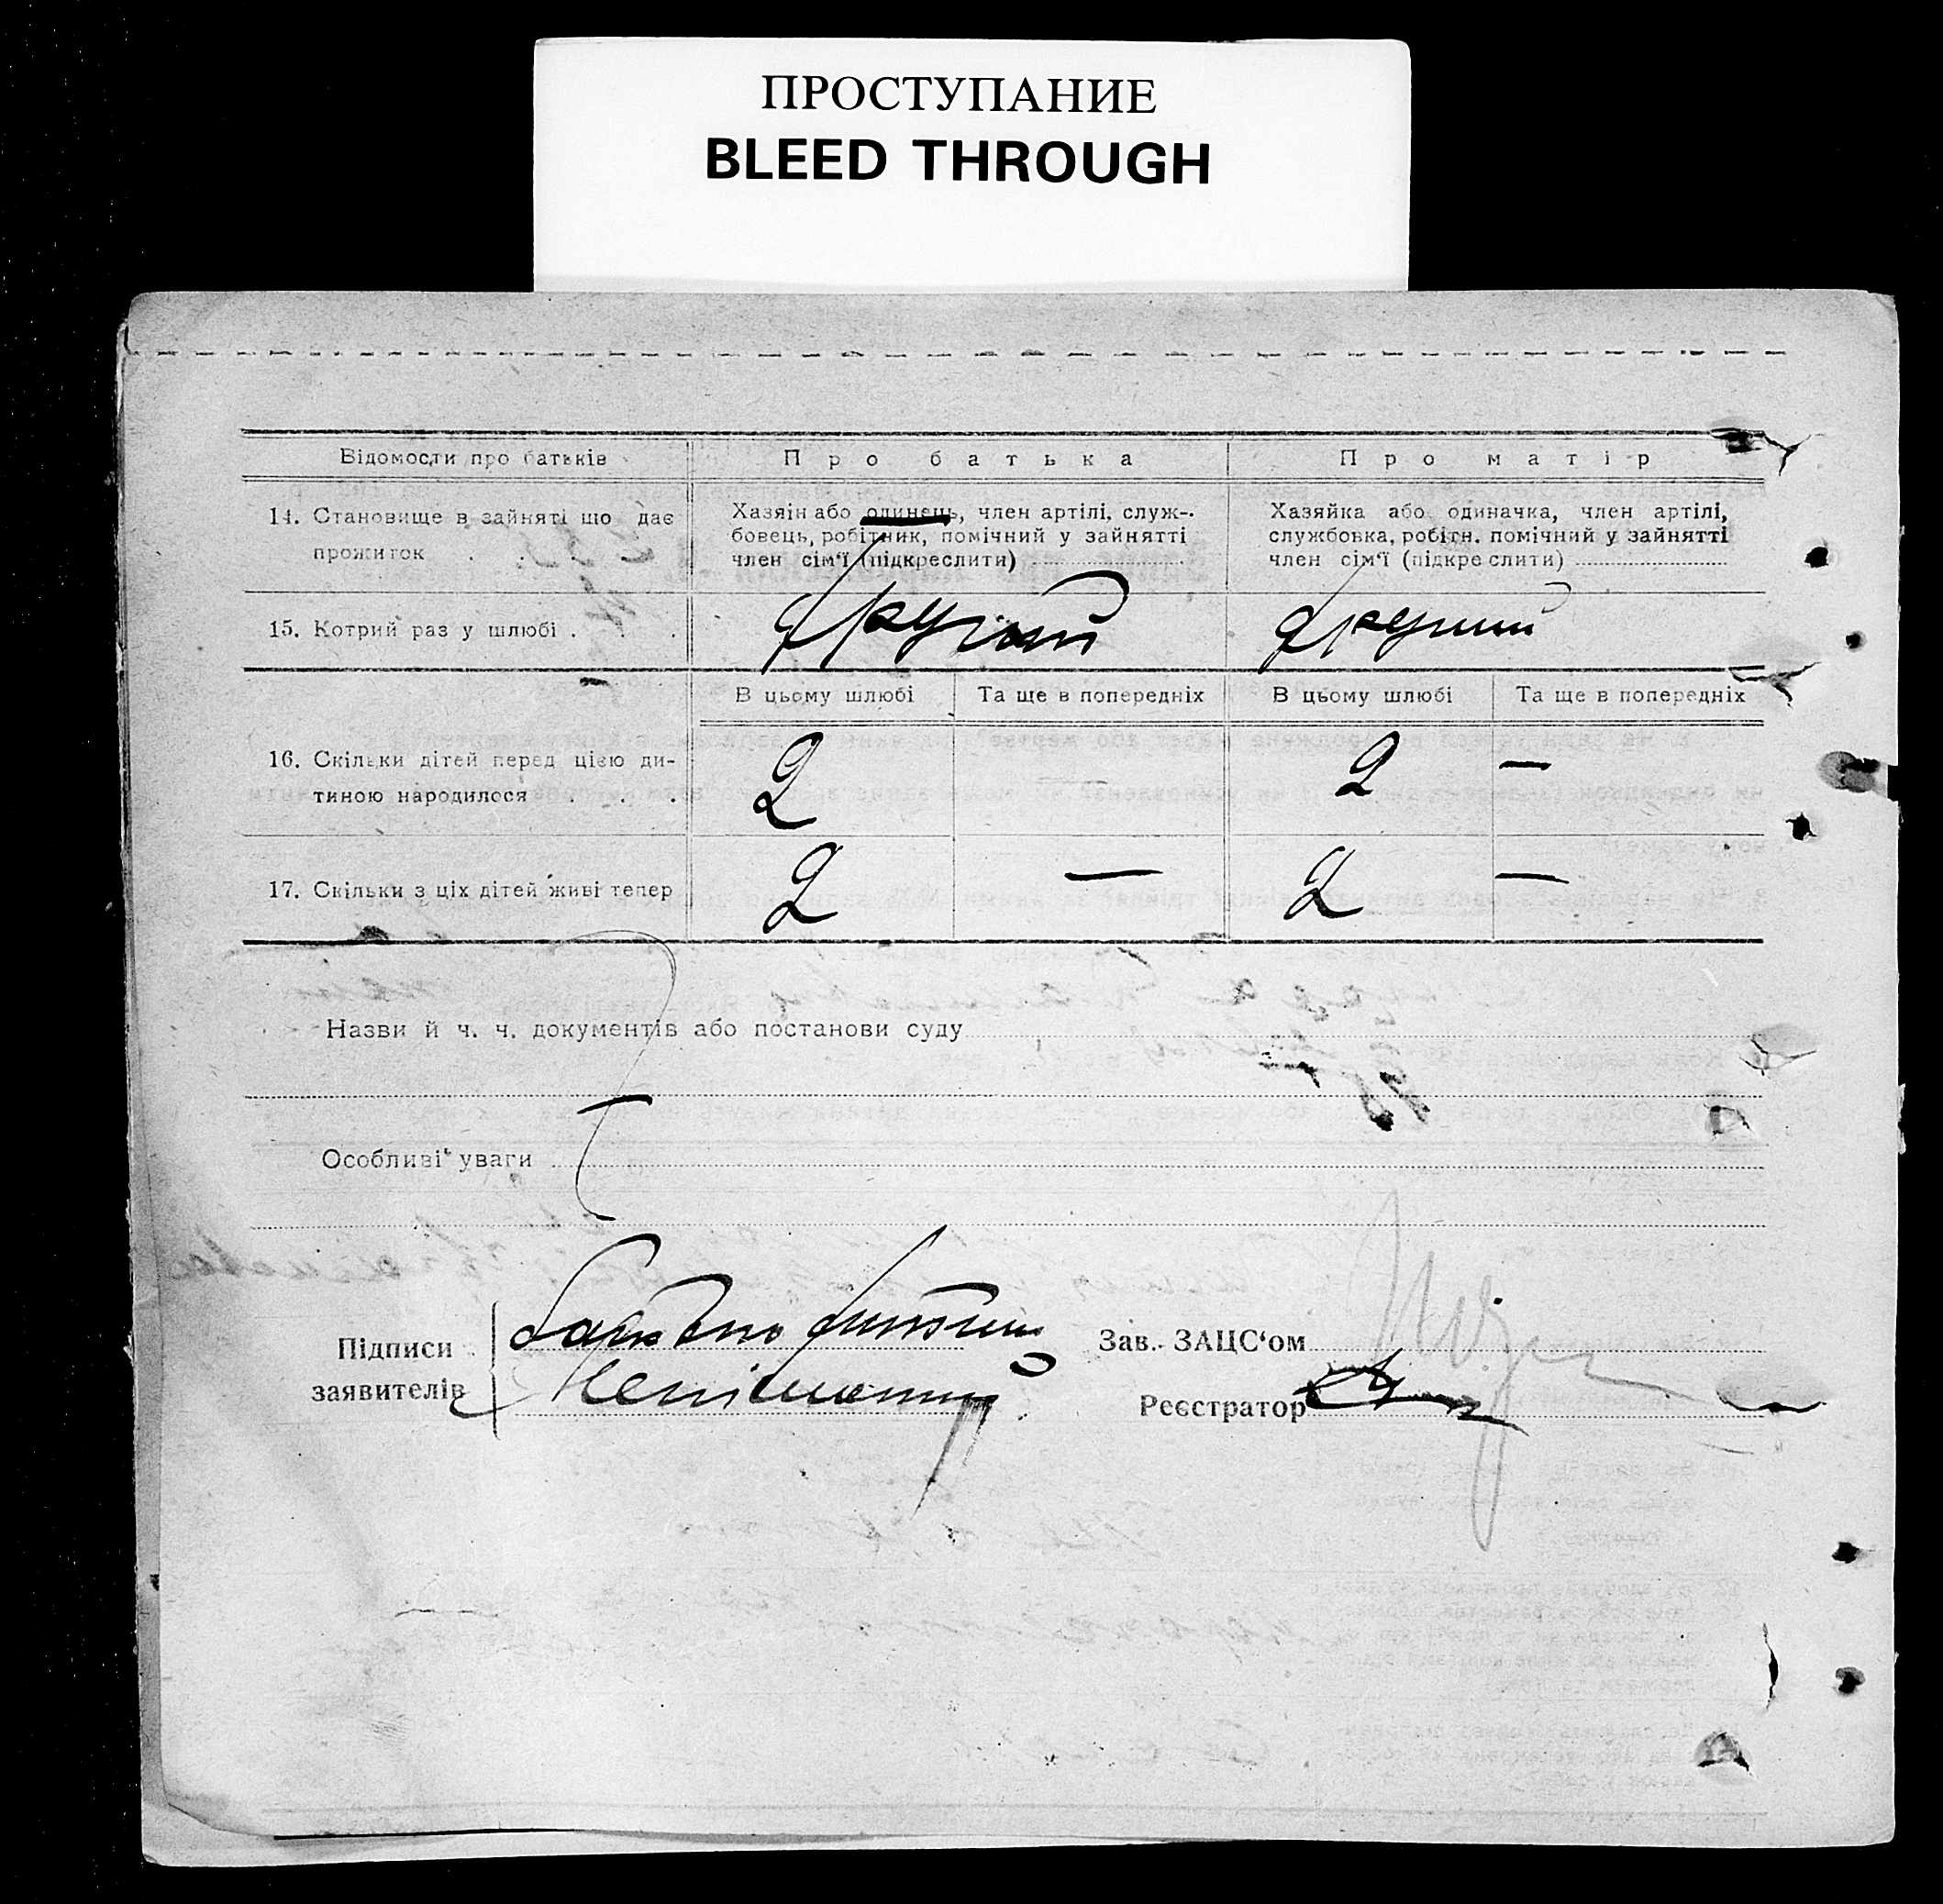 ПРОСТУПАНИЕ
BLEED THROUGH
Відомости про батьків
Про батька
Про матір
14. Становище в зайняті що дає
прожиток . .
Хазяін або одинець, член артілі, служ-
бовець, робітник, помічний у зайнятті
член сім'ї (підкреслити)
Хазяйка або одиначка, член артілі,
службовка, робітн. помічний у зайнятті
член сім'ї (підкреслити)
15. Котрий раз у шлюбі . . .
другий
другий
В цьому шлюбі
Та ще в попередніх
В цьому шлюбі
Та ще в попередніх
16. Скільки дітей перед цією ди-
тиною народилося . . .
2
2
—
17. Скільки з ціх дітей живі тепер
2
—
2
—
Назви й ч. ч. документів або постанови суду
Особливі уваги
Підписи
заявителів
Зав. ЗАЦС'ом
Реєстратор